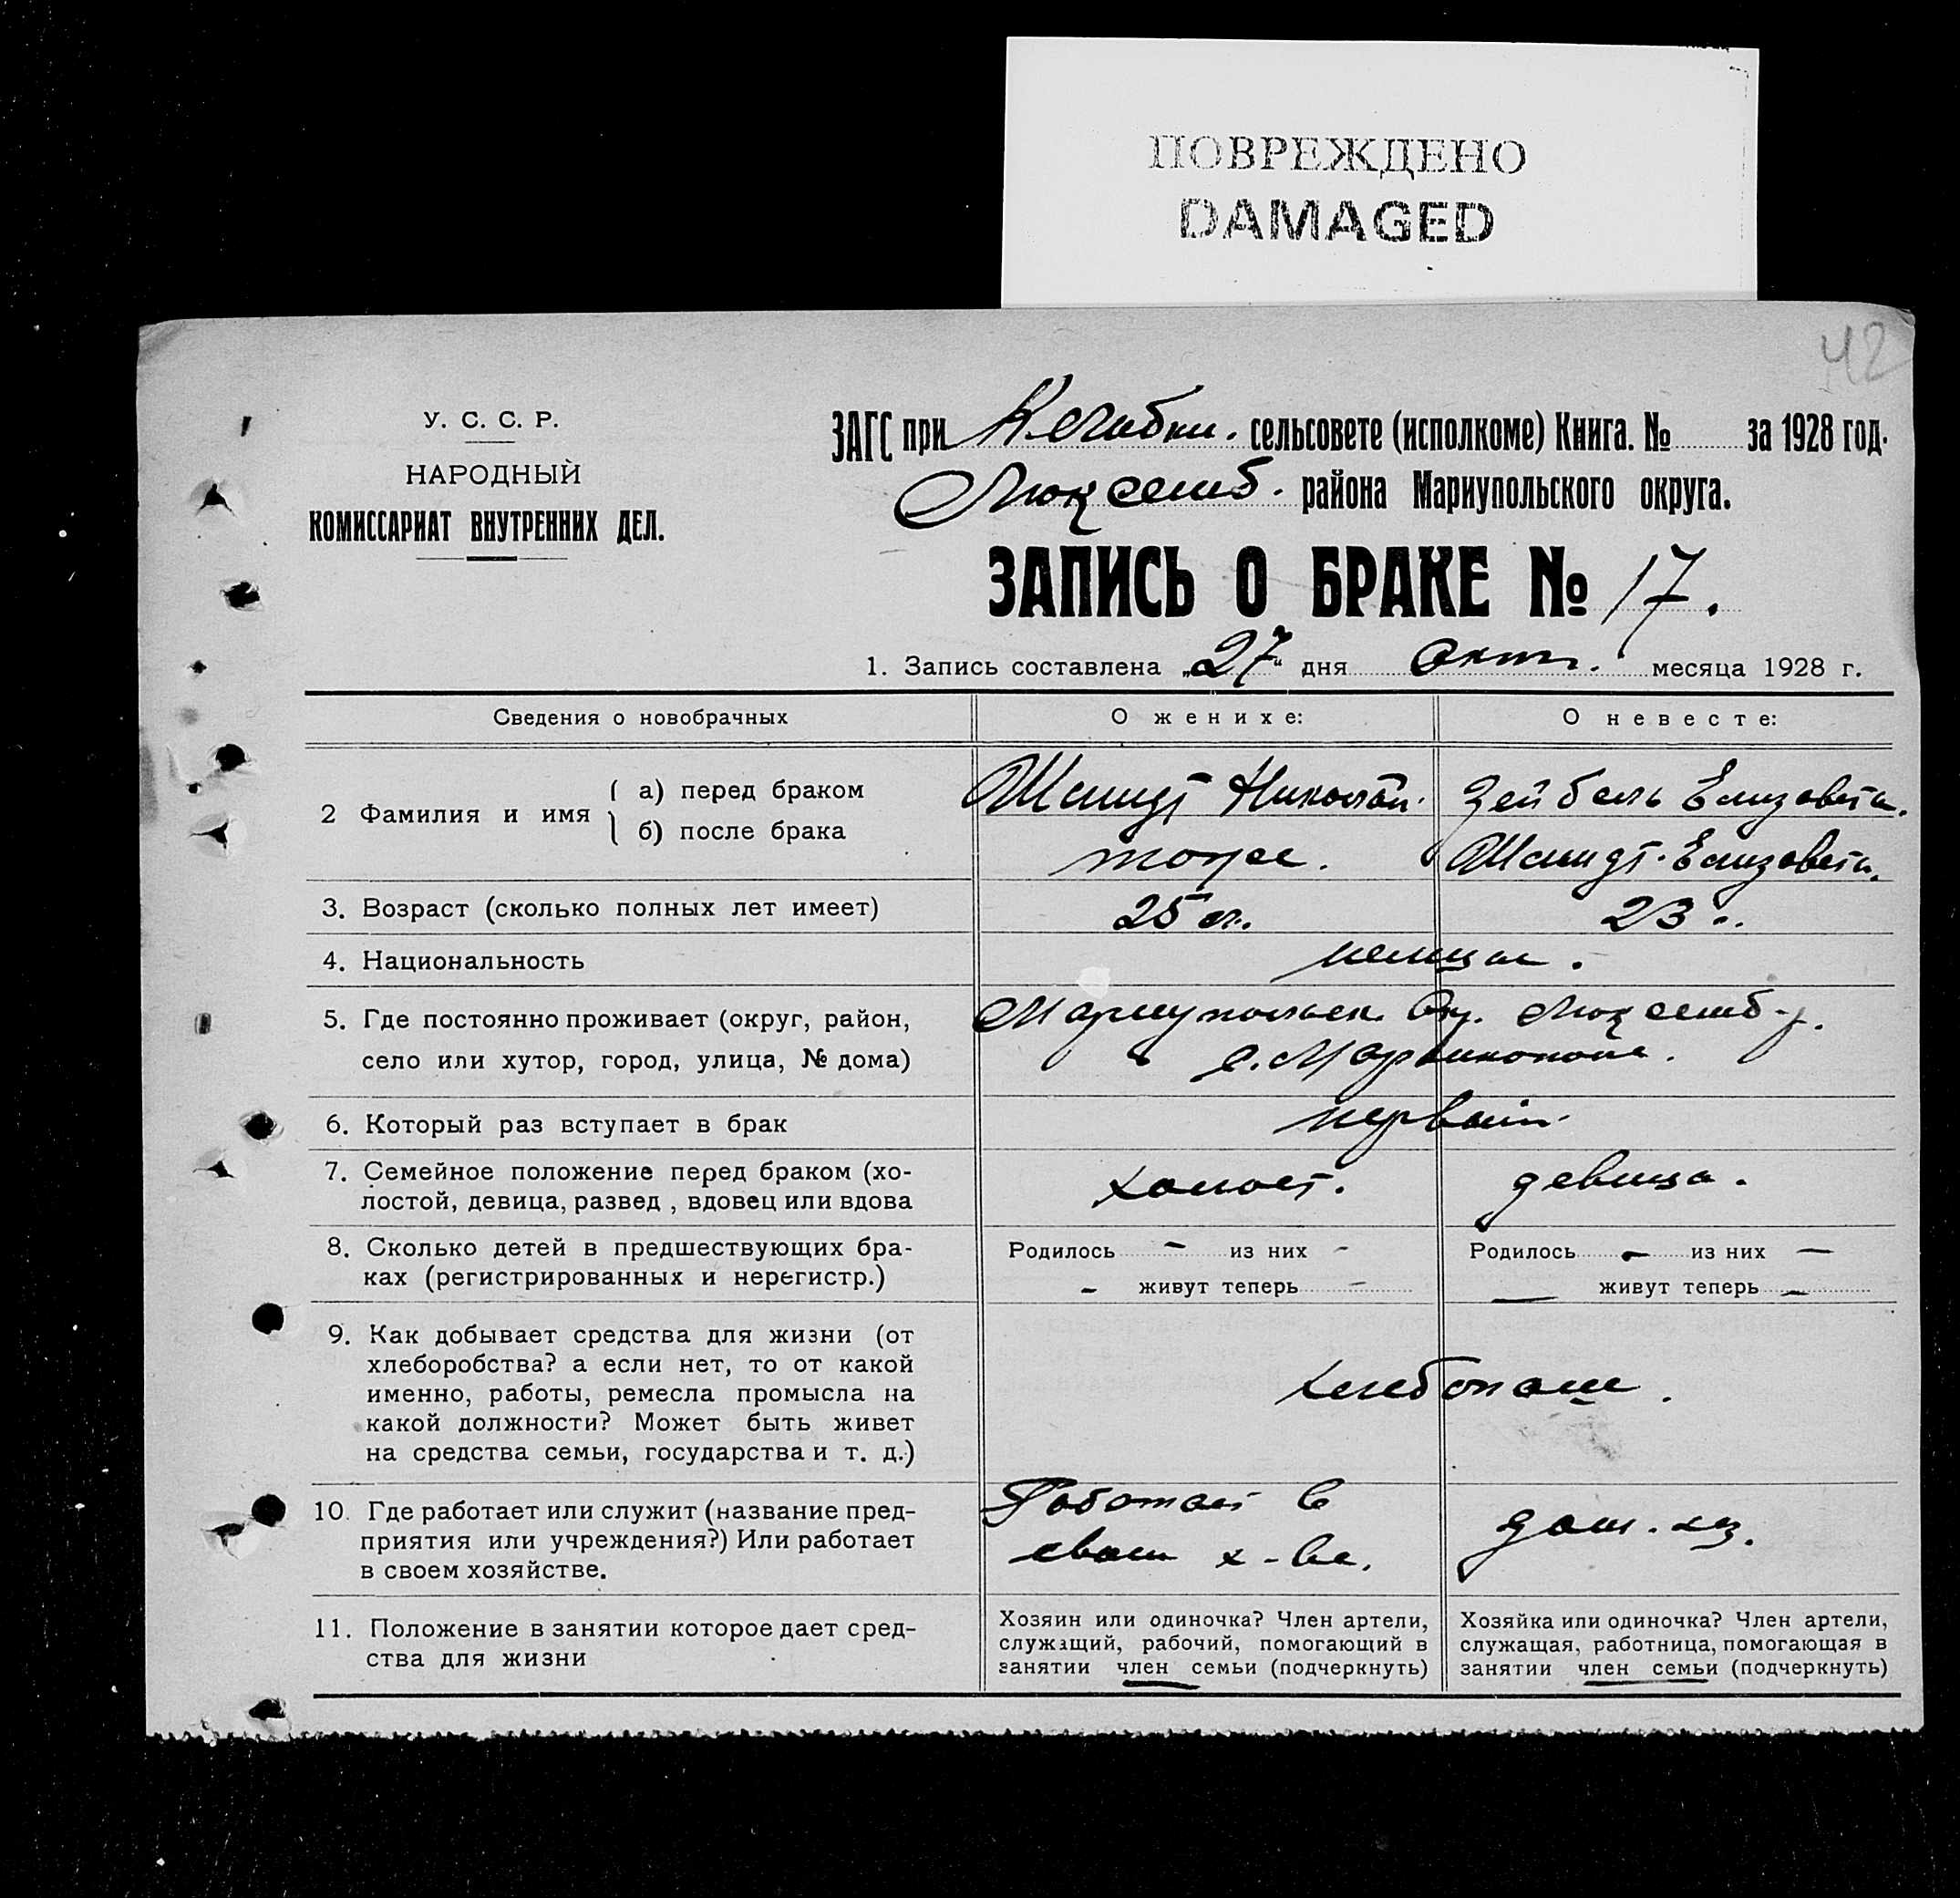 ПОВРЕЖДЕНО
DAMAGED
42
У. С. С. Р.
НАРОДНЫЙ
КОМИССАРИАТ ВНУТРЕННИХ ДЕЛ.
ЗАГС при сельсовете (исполкоме) Книга. № за 1928 год.
Люксемб. района Мариупольского округа.
ЗАПИСЬ О БРАКЕ № 17.
1. Запись составлена „27“ дня Окт. месяца 1928 г.
Сведения о новобрачных
О женихе:
О невесте:
2 Фамилия и имя
а) перед браком
б) после брака
Шмидт Николай.
Зейбель Елизавета.
тоже.
Шмидт. Елизавета.
3. Возраст (сколько полных лет имеет)
25 л.
23 "
4. Национальность
немцы.
5. Где постоянно проживает (округ, район,
село или хутор, город, улица, № дома)
Мариупольск. Окр. Люксемб. р.
с.
6. Который раз вступает в брак
первый
7. Семейное положение перед браком (хо-
лостой, девица, развед , вдовец или вдова
холост.
девица.
8. Сколько детей в предшествующих бра-
ках (регистрированных и нерегистр.)
Родилось - из них -
- живут теперь -
Родилось - из них —
— живут теперь -
9. Как добывает средства для жизни (от
хлеборобства? а если нет, то от какой
именно, работы, ремесла промысла на
какой должности? Может быть живет
на средства семьи, государства и т. д.)
хлебопаш.
10. Где работает или служит (название пред-
приятия или учреждения?) Или работает
в своем хозяйстве.
Работает в
своем х-ве.
дом. хоз.
11. Положение в занятии которое дает сред-
ства для жизни
Хозяин или одиночка? Член артели,
служащий, рабочий, помогающий в
занятии член семьи (подчеркнуть)
Хозяйка или одиночка? Член артели,
служащая, работница, помогающая в
занятии член семьи (подчеркнуть)